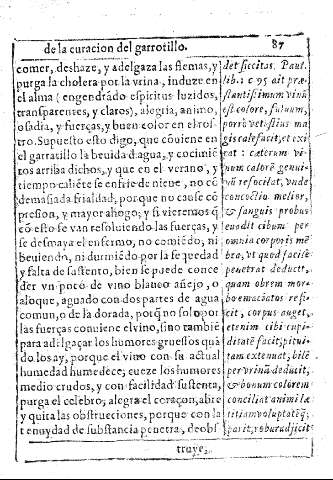 de la curacion del garrotillo. 87
comer, deshaze, y adelgaza las flemas, y
purga la cholera por la vrina, induze en
el alma (engendrãdo espiritus luzidos,
transparentes, y claros), alegria, animo,
osadia, y fuerças, y buen color en el ros-
tro. Supuesto esto digo, que cõuiene en
el garratillo la beuida d agua, y cocimiẽ
tos arriba dichos, y que en el verano, y
tiempo caliẽte se enfrie de nieue, no cõ
demasiada frialdad, porque no cause cõ
presion, y mayor ahogo; y si vieremos q̃
cõ esto se van resoluiendo las fuerças, y
se desmaya el enfermo, no comiẽdo, ni
beuiendo, ni durmiẽdo por la sequedad
y falta de sustento, bien se puede conce
der vn poco de vino blanco añejo, o
aloque, aguado con dos partes de agua
comun, o de la dorada, porq̃ no solo por
las fuerças conuiene el vino, sino tambiẽ
para adelgaçar los humores gruessos quã
do los ay, porque el vino con su actual
humedad humedece; cueze los humores
medio crudos, y con facilidad sustenta,
purga el celebro, alegra el coraçon, abre
y quita las obstruciones, porque con la
tenuydad de substancia penetra, deobs
truye,
det siccitas. Paul.
lib. 1. c 95 ait præ-
stantissimum vinũ
est colore, fuluum,
porrò vetustius ma
gis calefacit, et exi
tat: cæterum vi-
num calorẽ genui-
nũ refocilat, vnde
concoctio melior,
& sanguis probus
euadit cibum per
omnia corporis mẽ
bra, vt quod facile
penetrat deducit,
quam obrem mor-
bo emaciatos refi-
cit, corpus auget,
etenim cibi cupi-
ditatẽ facit, pitui-
tam extenuat, bilẽ
per vrinã deducit,
& bonum colorem
conciliat animi læ
titiam voluptatẽq́;
parit, robur adijcit